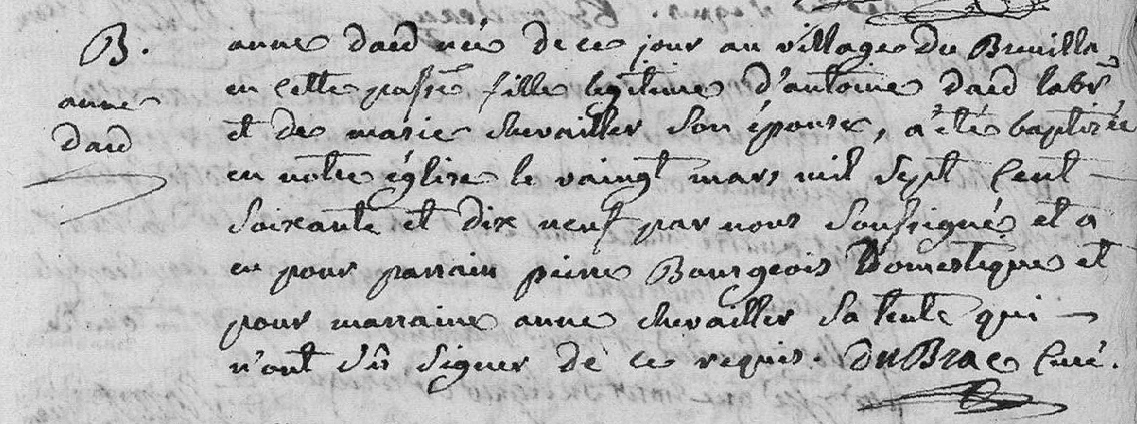 B.
anne
daud
anne daud née de ce jour au village du Breuilla
en cette passe fille legitime d'antoine daud labr
et de marie chevailler son épouse, a été baptisée
en notre église le vaingt mars mil sept cent
soixante et dix neuf par nous soussigné et a
eu pour parrain pierre Bourgeois Domestique et
pour marraine anne chevailler sa tente qui
n'ont sû signer de ce requis. duBrac curé.